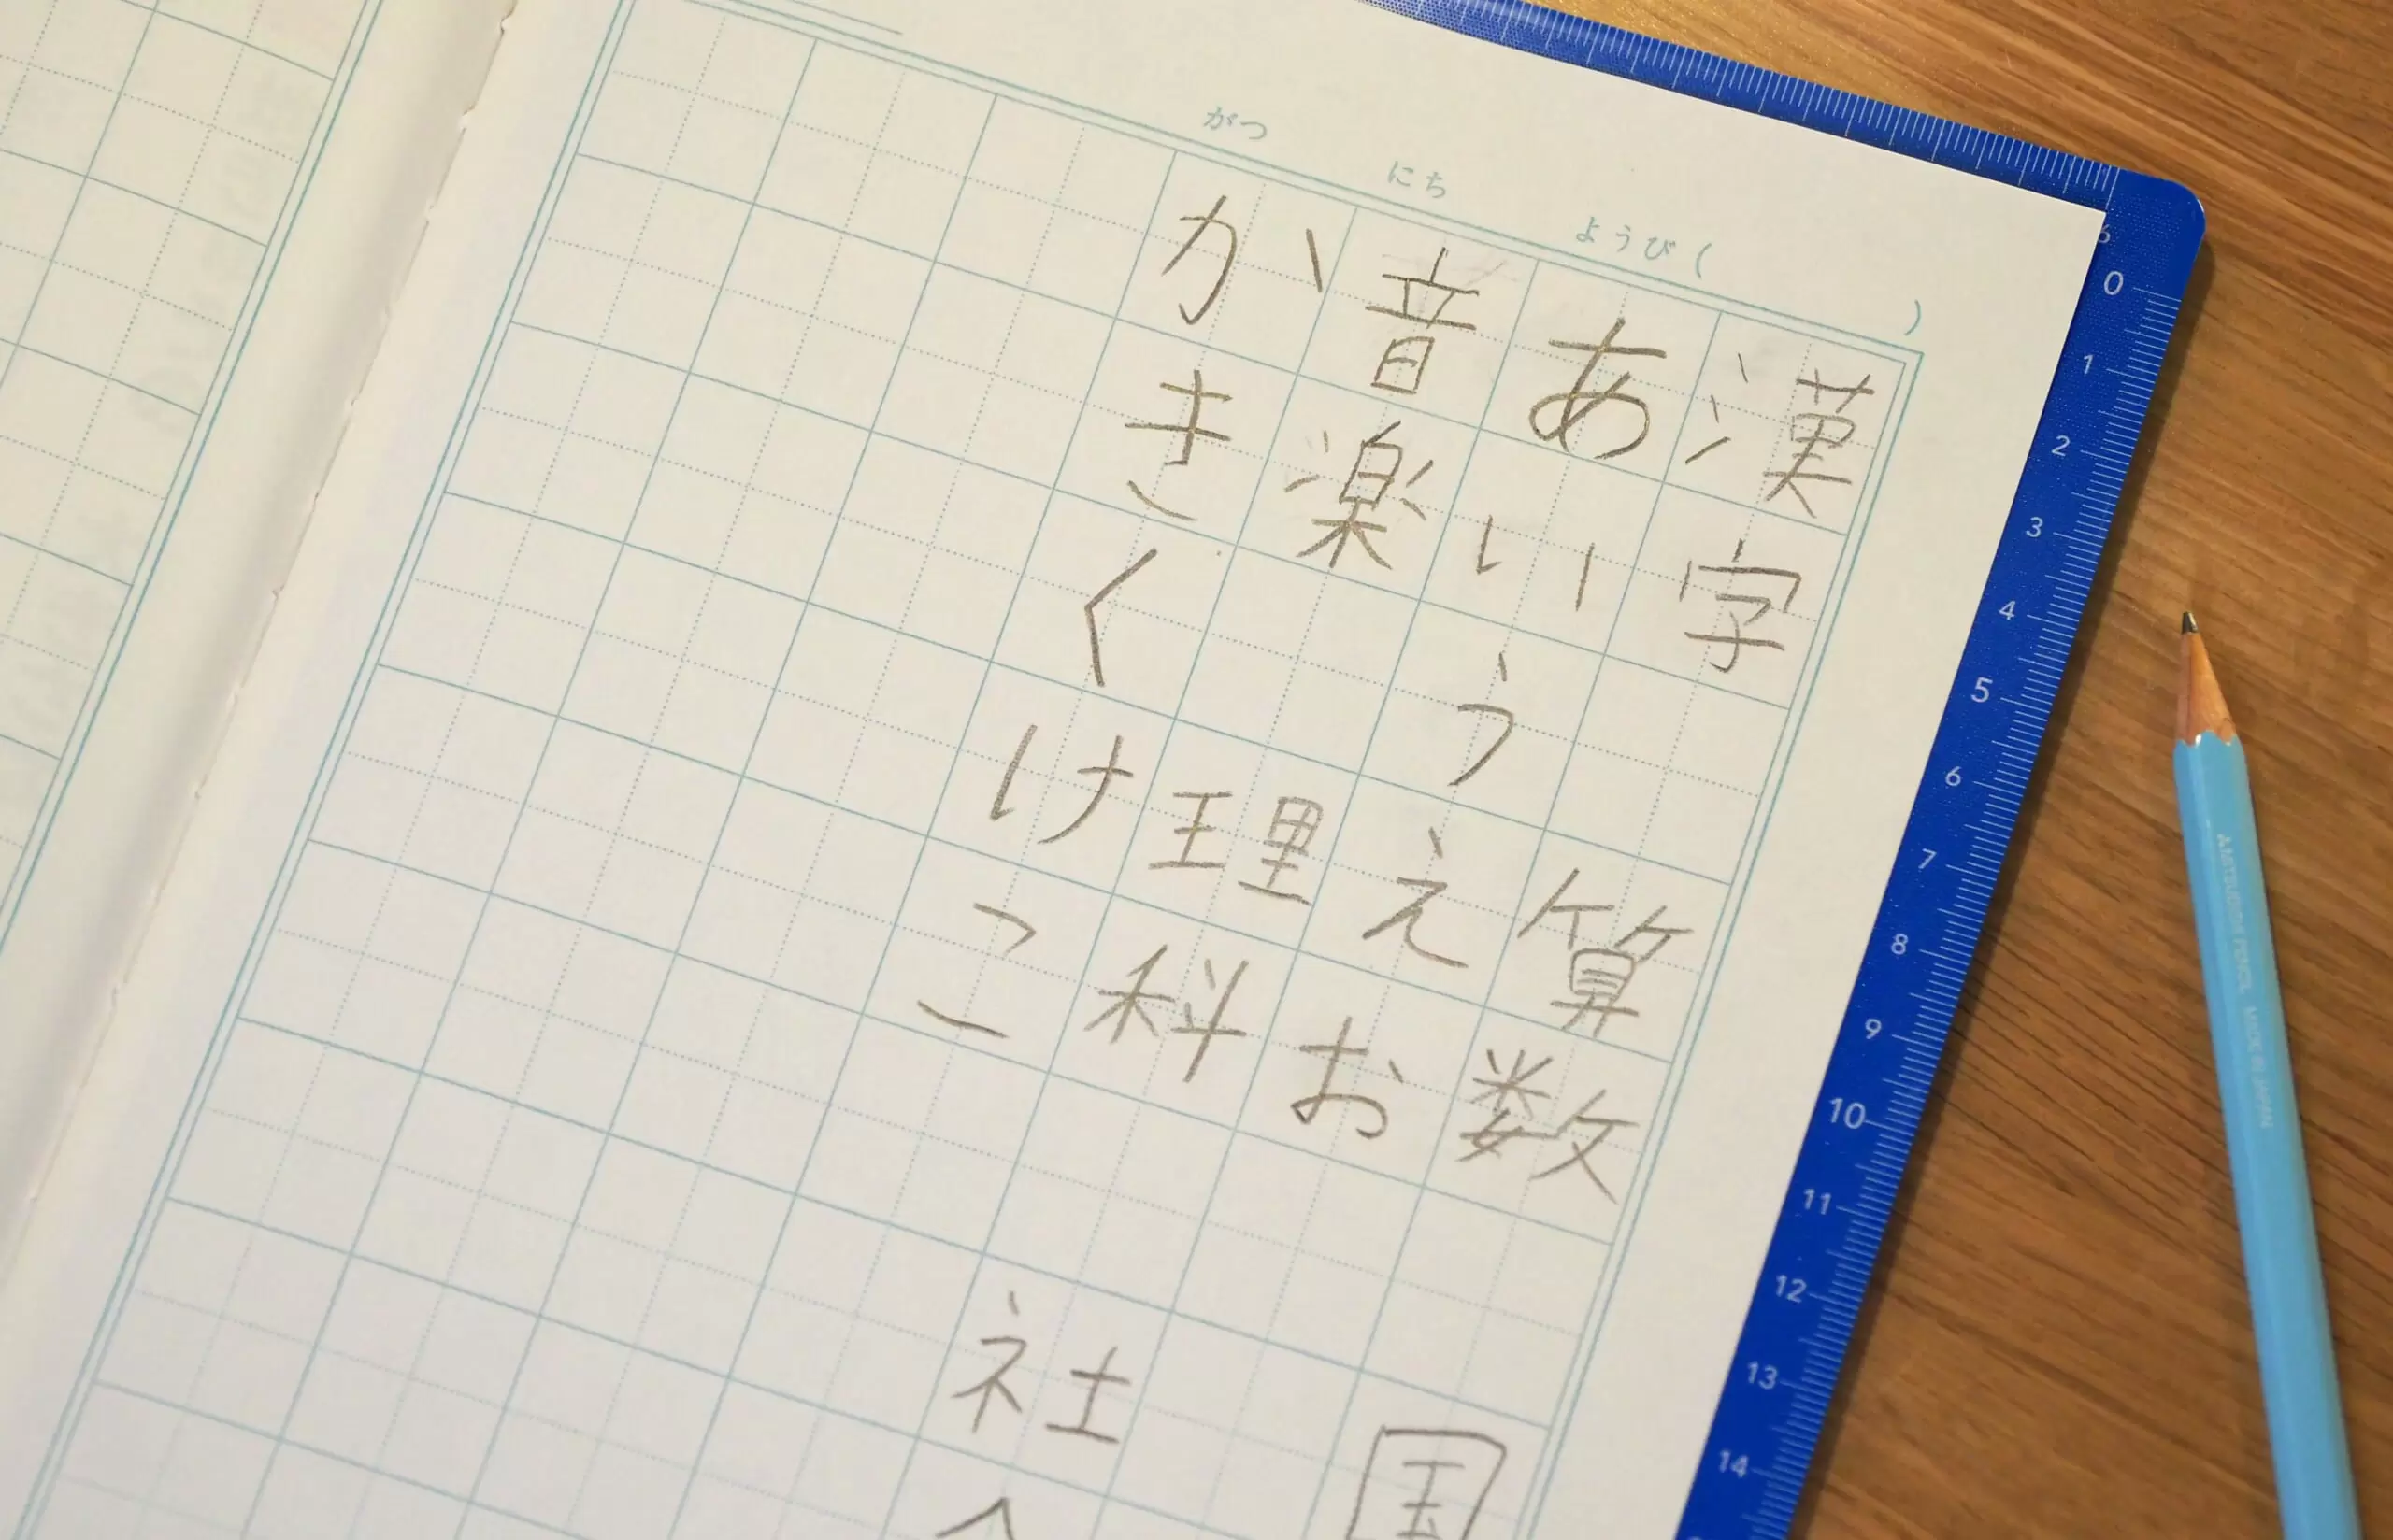 がつ にち ようび( )
漢字 算数 国
あいうえお
音楽 理科 社
かきくけこ
0 1 2 3 4 5 6 7 8 9 10 11 12 13 14